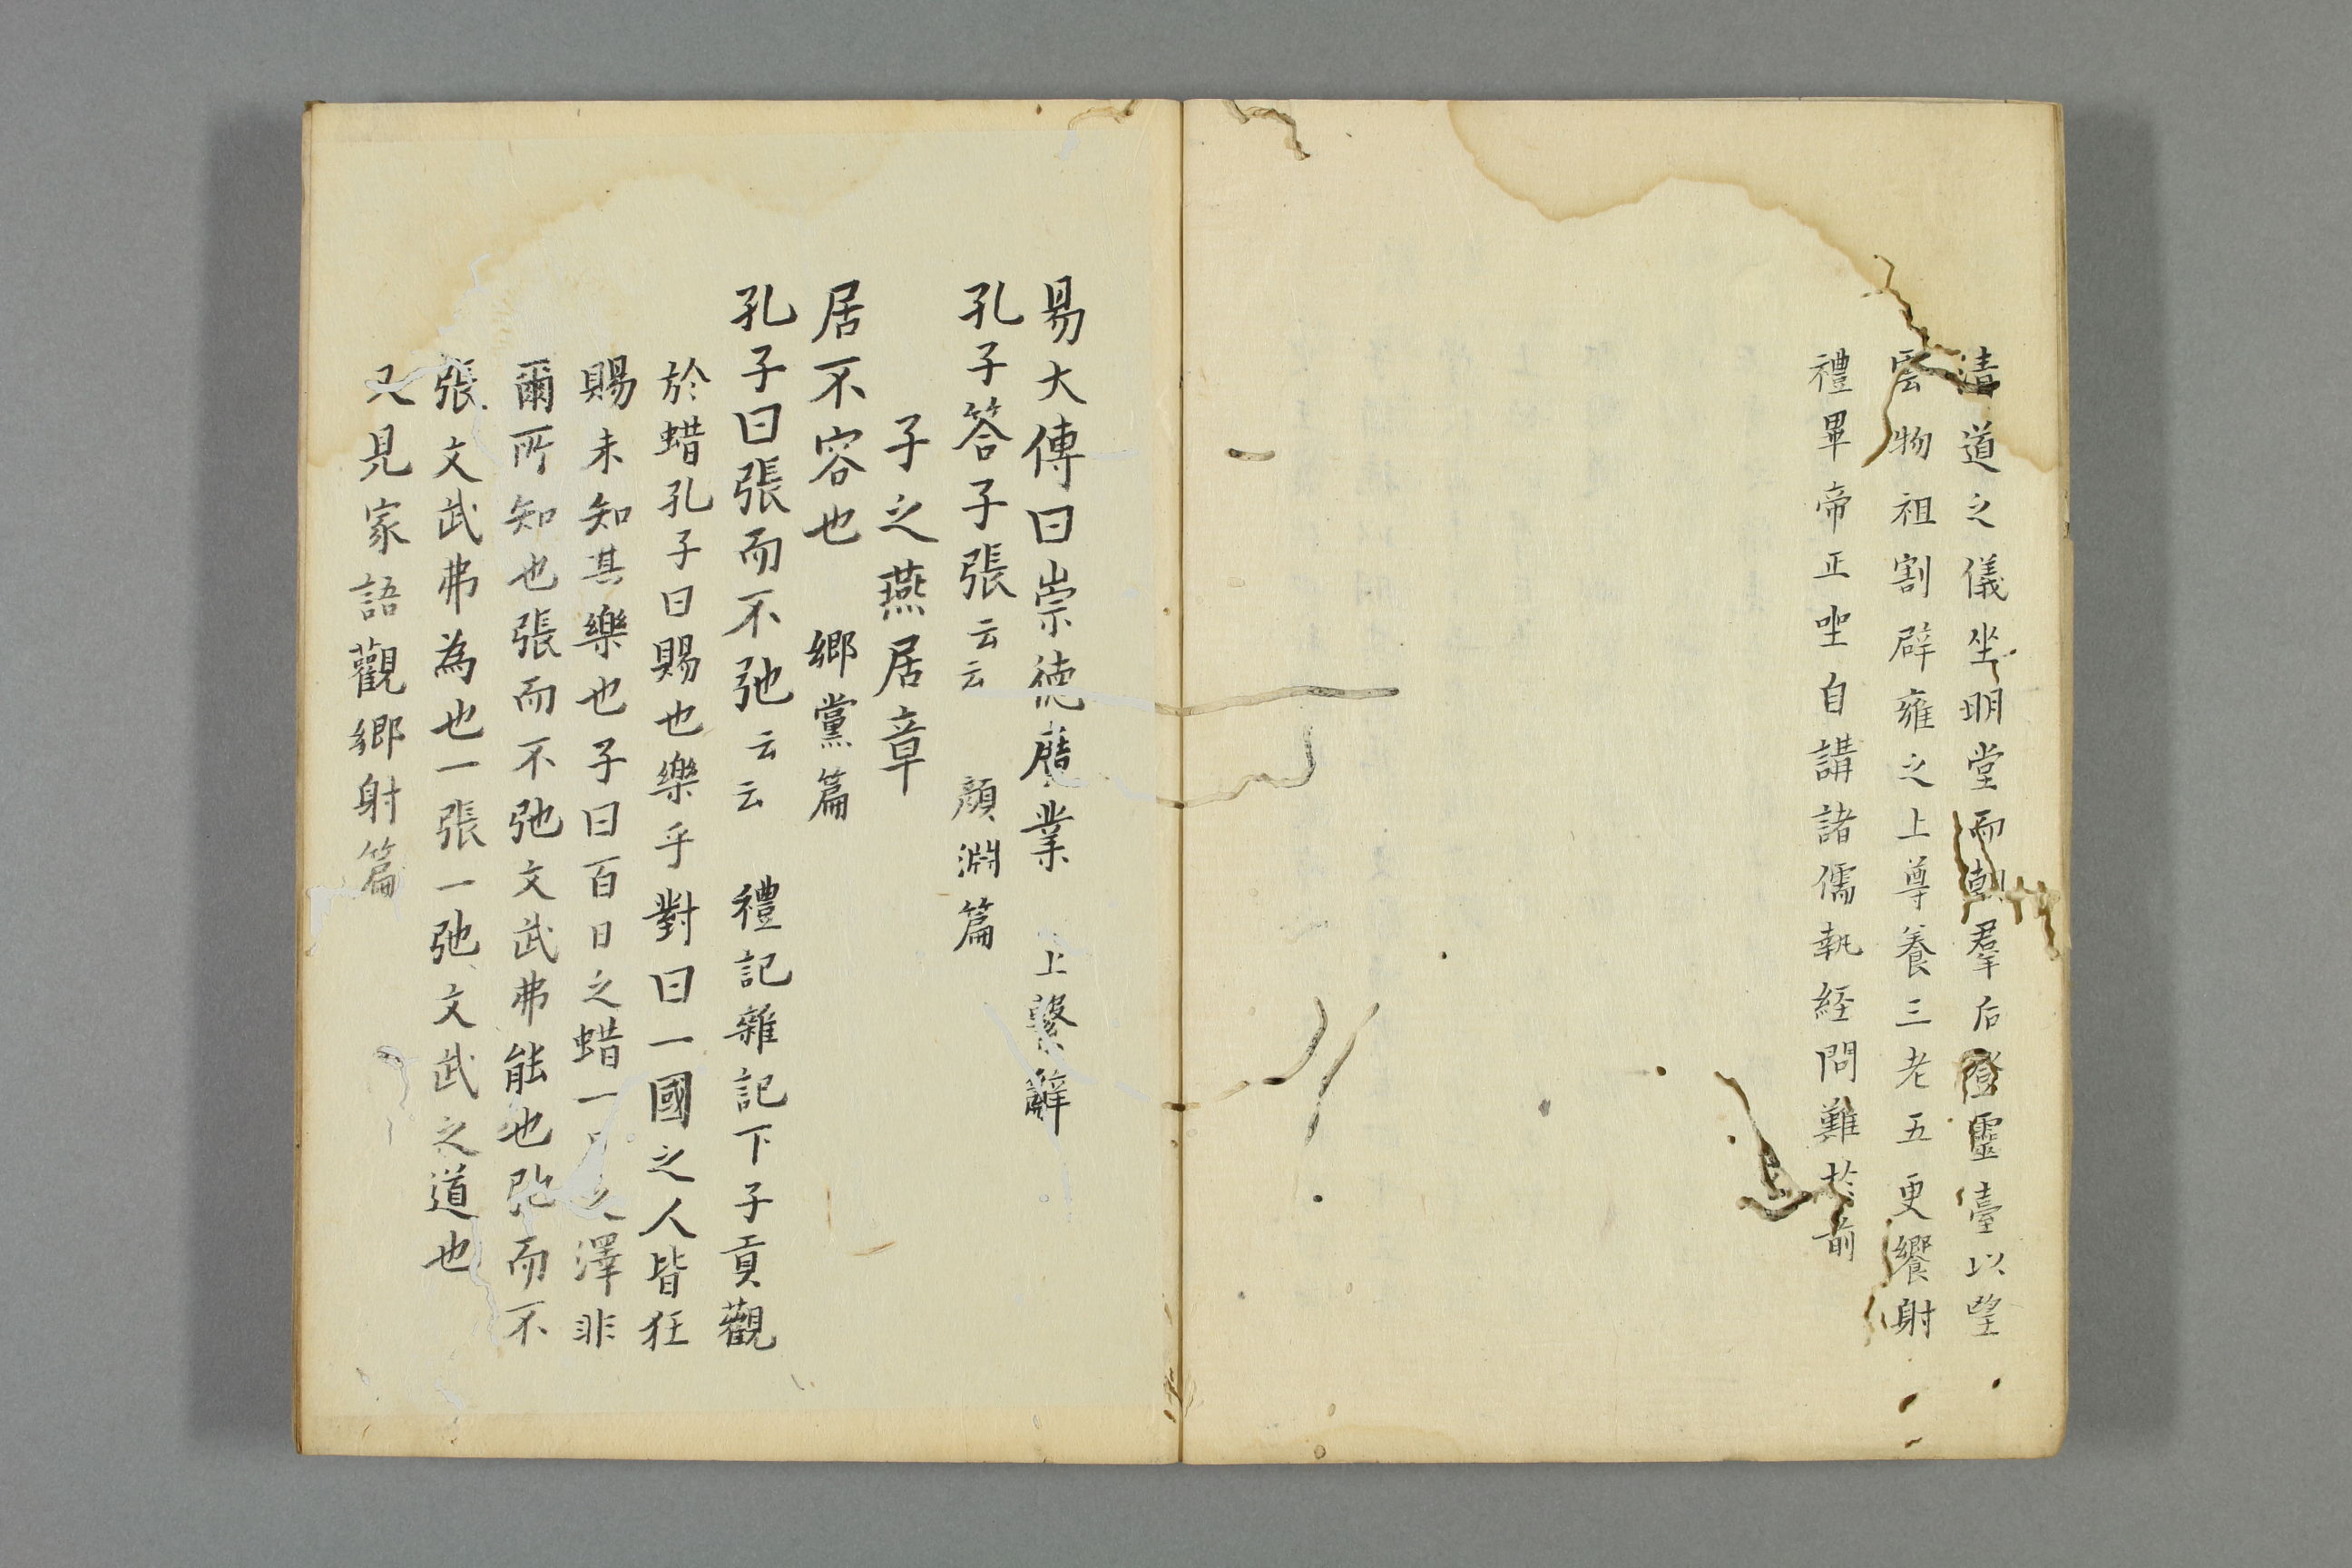 清道之儀坐明堂而朝羣后登靈臺以望
雲物祖割辟雍之上尊養三老五更饗射
禮畢帝正坐自講諸儒執経問難於前
易大傳曰崇徳廣業　上繫辭
孔子答子張云云　顔淵篇
子之燕居章
居不容也　鄉黨篇
孔子曰張而不弛云云　禮記雜記下子貢觀
於蜡孔子曰賜也樂乎對曰一國之人皆狂
賜未知其樂也子曰百日之蜡一日之澤非
爾所知也張而不弛文武弗能也弛而不
張文武弗為也一張一弛文武之道也
又見家語觀鄉射篇